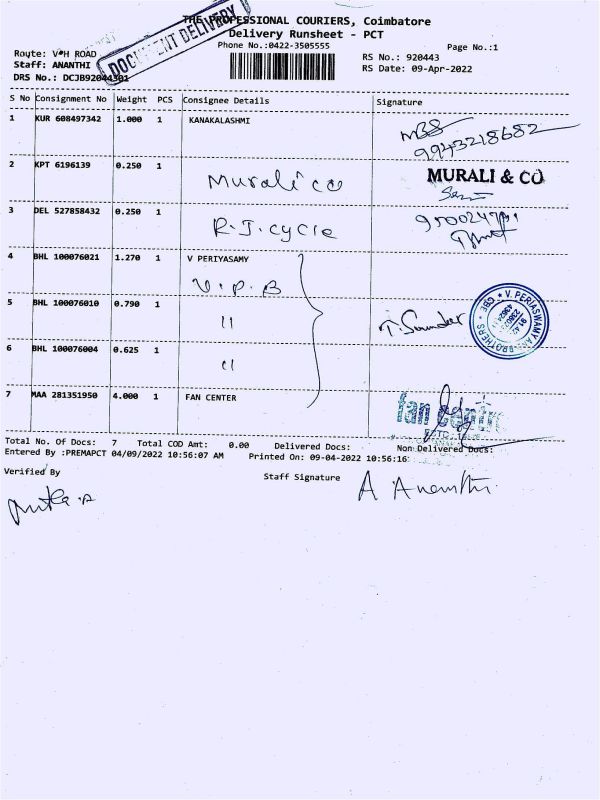 THE PROFESSIONAL COURIERS, Coimbatore
Delivery Runsheet - PCT
DOCUMENT DELIVERY
Phone No.:0422-3505555
Page No.:1
Route: V*H ROAD
RS No.: 920443
Staff: ANANTHI
RS Date: 09-Apr-2022
DRS No.: DCJB92044301
S No Consignment No Weight PCS Consignee Details Signature
1 KUR 608497342 1.000 1 KANAKALASHMI
9943218682
2 KPT 6196139 0.250 1 Murali co MURALI & CO
3 DEL 527858432 0.250 1 R.J.cycle
4 BHL 100076021 1.270 1 V PERIYASAMY
V.P.B
5 BHL 100076010 0.790 1 11
V. PERIASWAMY AND BROTHERS * CBE *
6 BHL 100076004 0.625 1 11
7 MAA 281351950 4.000 1 FAN CENTER
fan centre
Total No. Of Docs: 7 Total COD Amt: 0.00 Delivered Docs: Non Delivered Docs:
Entered By :PREMAPCT 04/09/2022 10:56:07 AM Printed On: 09-04-2022 10:56:16
Verified By Staff Signature
A Ananthi